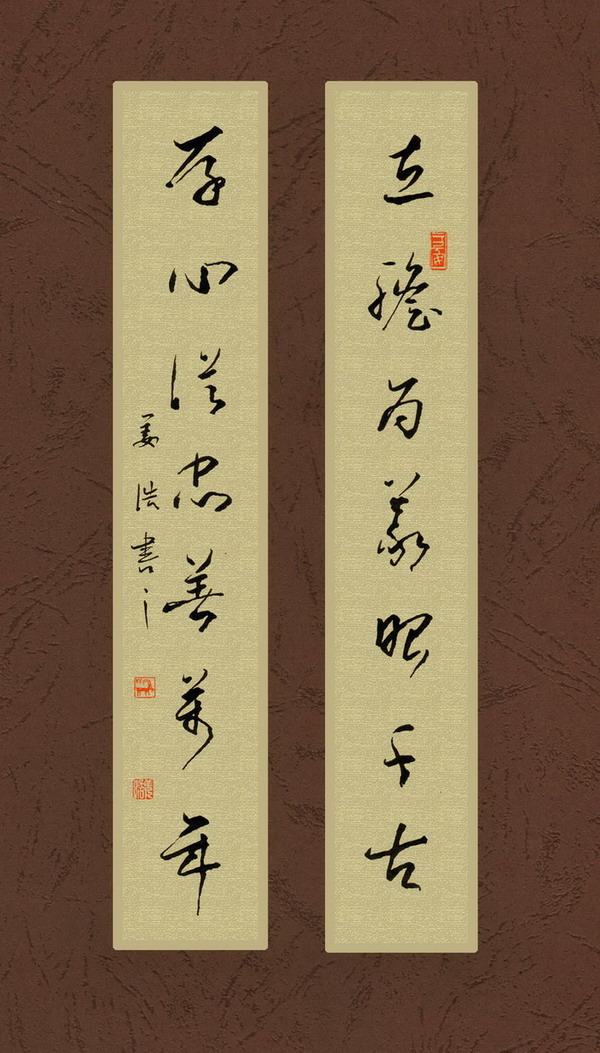 立膽為義昭千古
存心從忠善萬年
姜浩書之